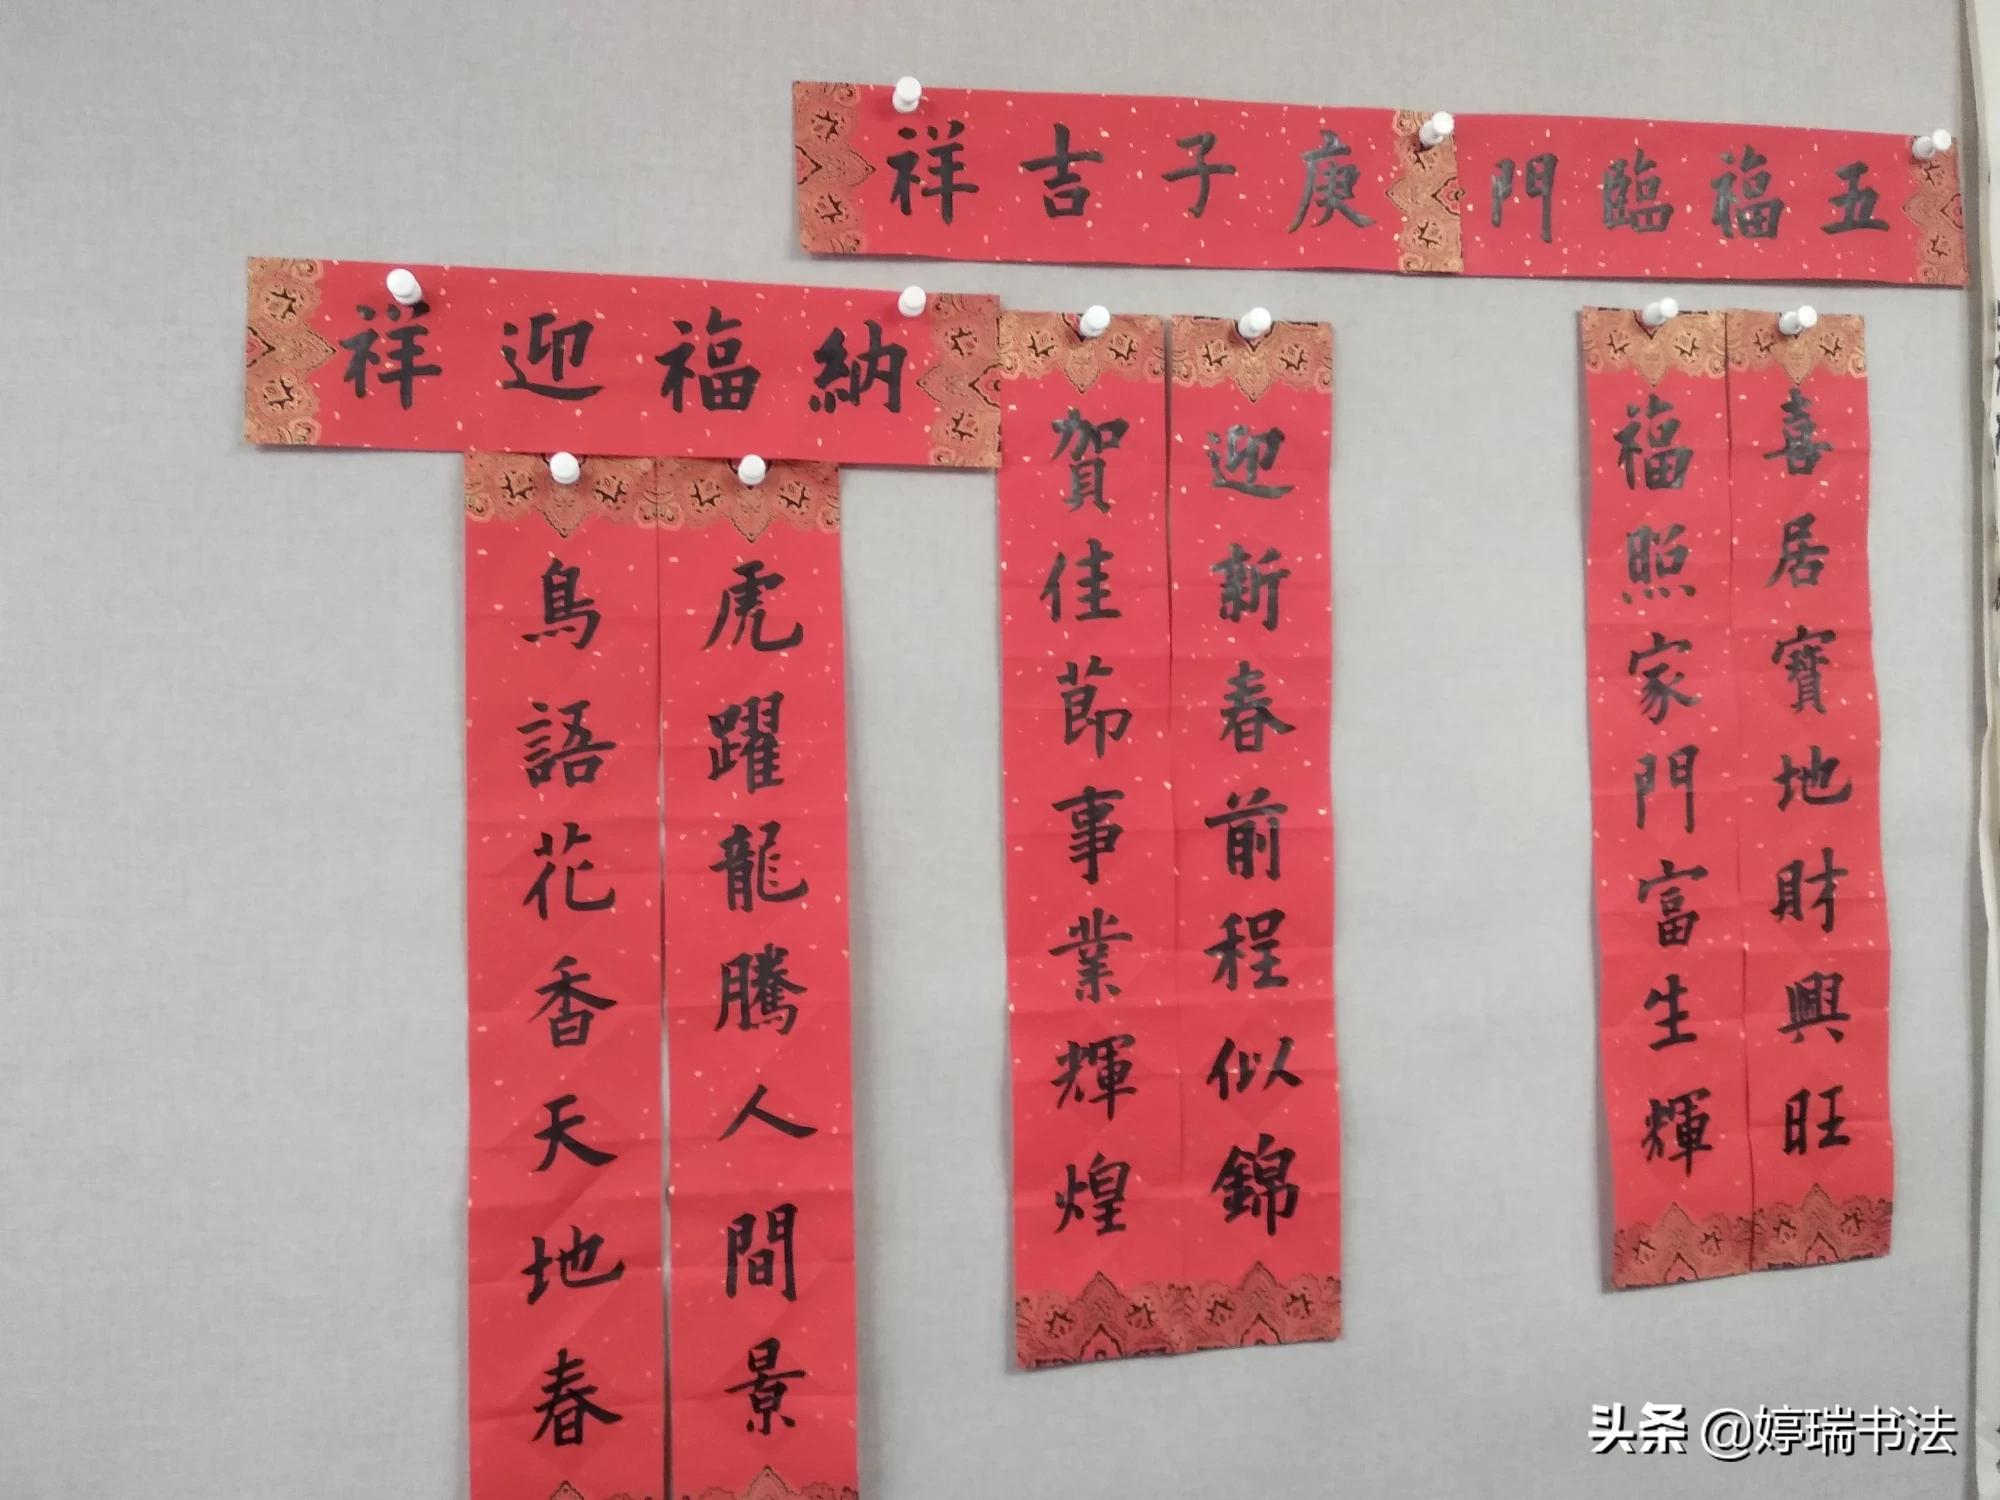 五福臨門
庚子吉祥
納福迎祥
喜居寶地財興旺
福照家門富生輝
迎新春前程似錦
賀佳節事業輝煌
虎躍龍騰人間景
鳥語花香天地春
头条 @婷瑞书法